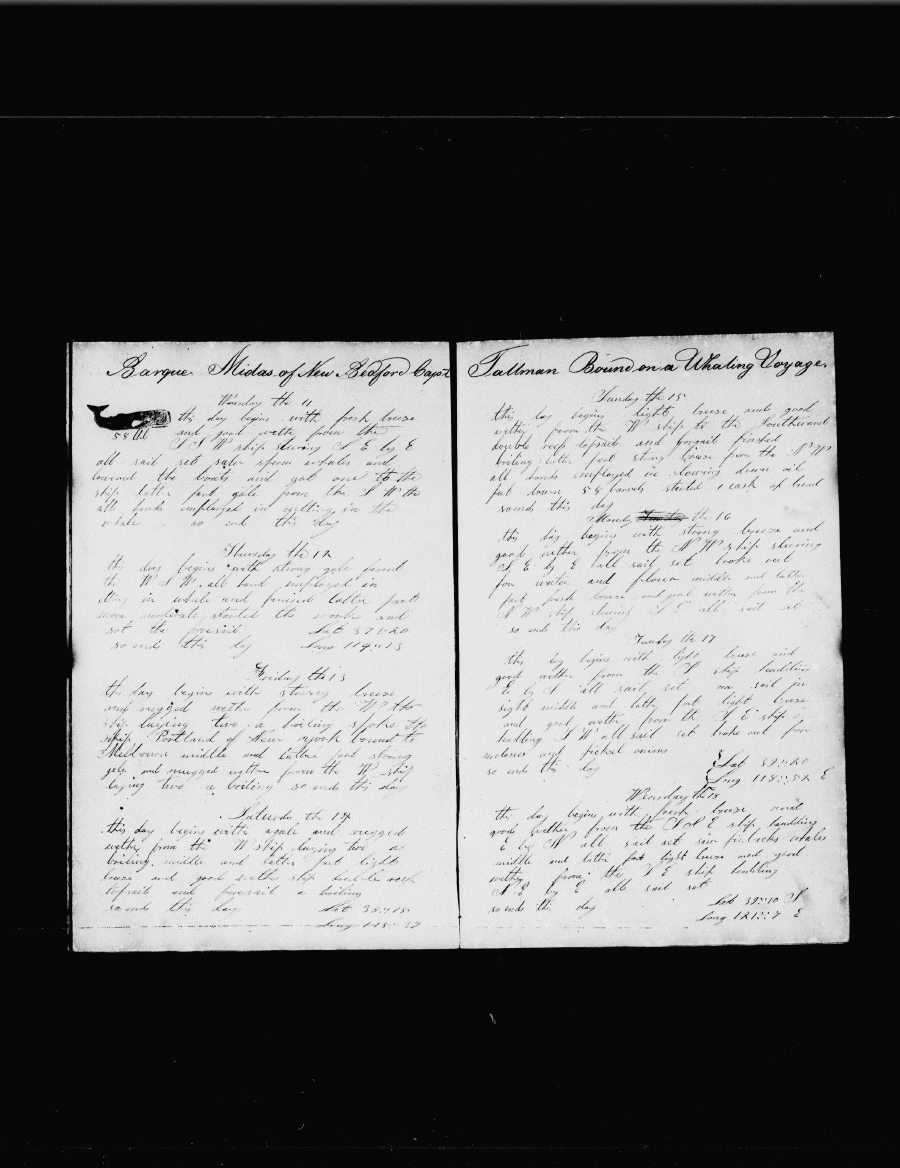 Barque Midas of New Bedford Capt
Wensday the 11
this day begins with fresh breeze
and good wether from the
58 bbl
S S W ship stering S E by E
all sail set saw sperm whales and
lowered the boats and got one to the
ship latter part gale from the S W the
all hands employed in cutting in the
whale so ends this day
Thursday the 12
this day begins with strong gale
the W S W all hand employed in
in whale and finised latter part
more moderate started the works and
set the foresail Lat 37 20
so ends this day Long 114 13
Friday the 13
this day begins with strong breeze
and rugged wether from the W the
ship laying two a boiling spoke the
ship Portland of New york bound to
Melbourn middle and latter part strong
gale and rugged wether from the W ship
laying two a boiling so ends this day
Saturday the 14
this day begins with a gale and rugged
wether from the W ship laying two a
boiling middle and latter part light
breze and good wether ship double reef
topsail and foresail a boiling
so ends this day Lat 38 15
Long 115 37
Tallman Bound on a Whaling Voyage.
Sunday the 15
this day begins light breeze and good
wether from the W ship to the Southward
double reef topsails and foresail finished
boiling latter part strong breeze from the N W
all hands employed in stowing down oil
put down 58 barrels started 1 cask of bread
so ends this day
Monday the 16
this day begins with strong breeze and
good wether from the N W ship stering
S E by E all sail set broke out
for water and flower middle and latter
part fresh breeze and good wether from the
N W ship stering S E all sail set
so ends this day
Tuesday the 17
this day begins with light breeze and
good wether from the S ship heading
E by S all sail set one sail in
sight middle and latter part light breze
and good wether from the S E ship
heading S W all sail set broke out for
molasses and pickel onions
so ends this day Lat 39 20
Long 118 52 E
Wensday the 18
the day begins with fresh breeze and
good wether from the N N E ship heading
E by N all sail set saw finbacks whales
middle and latter part light breze and good
wether from the N E ship heading
N E by E all sail set
so ends this day Lat 39 10 S
Long 121 7 E